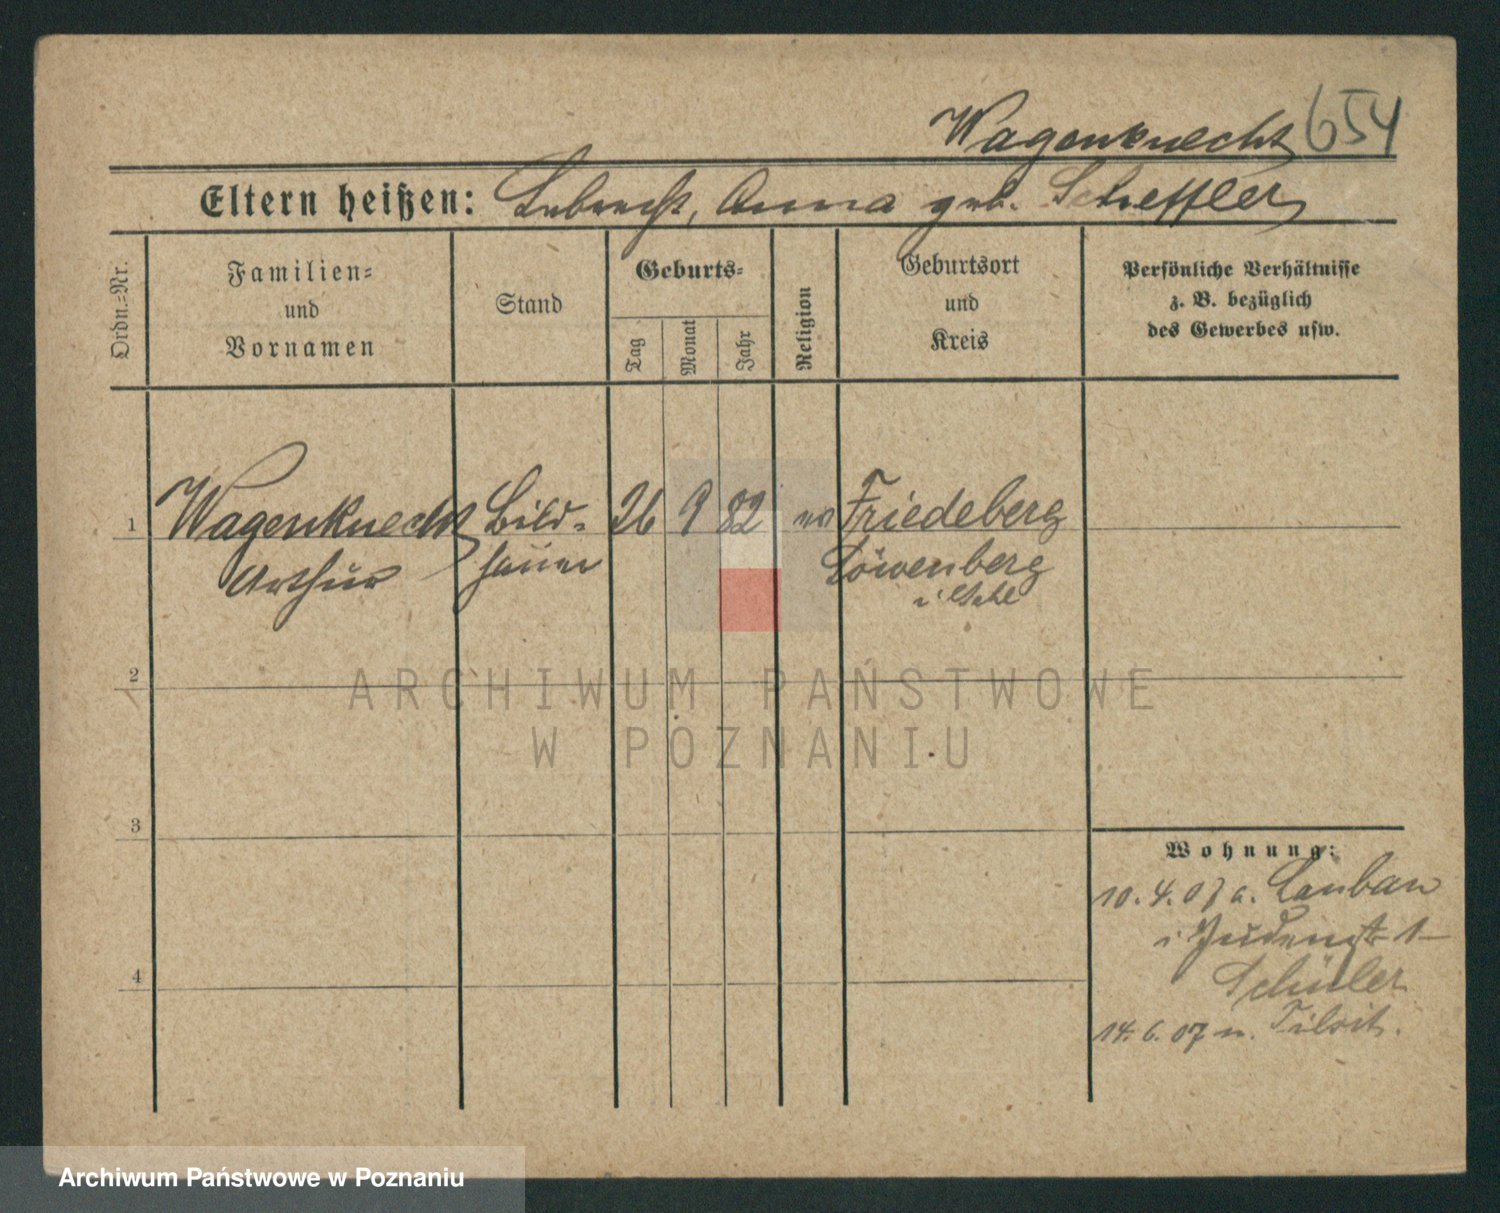 Wagenknecht 654
Eltern heißen: Lebrecht, Anna geb. Scheffler
Ordn.-Nr.
Familien-
und
Vornamen
Stand
Geburts-
Tag
Monat
Jahr
Religion
Geburtsort
und
Kreis
Persönliche Verhältnisse
z. B. bezüglich
des Gewerbes usw.
1 Wagenknecht Bild- 26 9 82 ev Friedeberg
Arthur hauer Löwenberg
i Schl
2
3
4
Wohnung:
10.4.07 a. Lauban
i Judenstr 1
Schüler
14.6.07 n. Tilsit.
ARCHIWUM PAŃSTWOWE
W POZNANIU
Archiwum Państwowe w Poznaniu